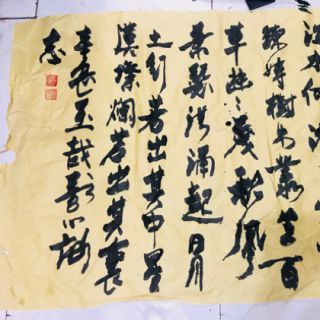 水何澹
竦峙樹木叢生百
草豐茂秋風
蕭瑟洪涌起日月
之行若出其中星
漢燦爛若出其裏
幸甚至哉歌以詠
志